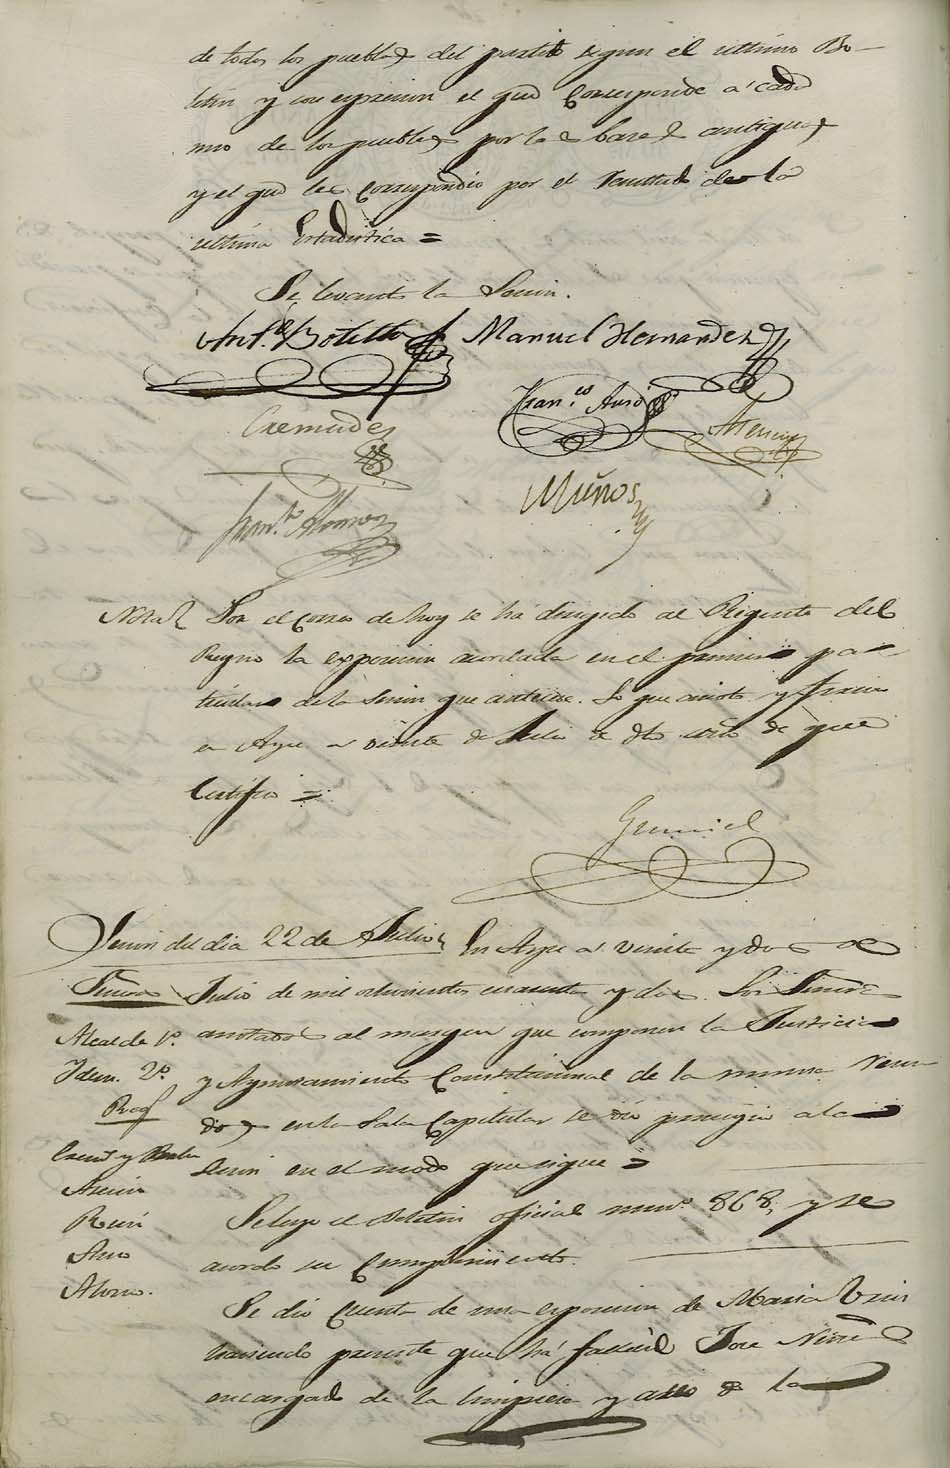 de todos los pueblos del partido segun el ultimo Bo-
letin y con expresion el que Corresponde á cada
uno de los pueblos por las bases antiguas
y el que les Correspondio por el Resultado de la
ultima Estadistica =
Se levantó la Sesion.
Ant.º Botella Manuel Hernandez
Fran.co Auso
Cremades Asencio
Muños
Fran.co Alonso
Nota Por el Correo de hoy se há dirigido al Regente del
Reyno la exposicion acordada en el primero par-
ticular de la Sesion que antecede. Lo que anoto y firmo
en Aspe a veinte de Julio de dho año de que
Certifico =
Sesion del dia 22 de Julio En Aspe á veinte y dos de
Señores Julio de mil ochocientos cuarenta y dos. Los Señores
Alcalde 1º. anotados al margen que componen la Justicia
Idem. 2º. y Ayuntamiento Constitucional de la misma reuni
Reg.s dos en la Sala Capitular se dió principio a la
Crem.s y Botella Sesion en el modo que sigue =
Asencio
Auso
Alonso.
Se leyo el Boletin oficial num.º 868, y se
acordó su Cumplimiento.
Se dió Cuenta de una exposicion de Maria
haciendo presente que há fallecido Jose
encargado de la limpieza y aseo de la